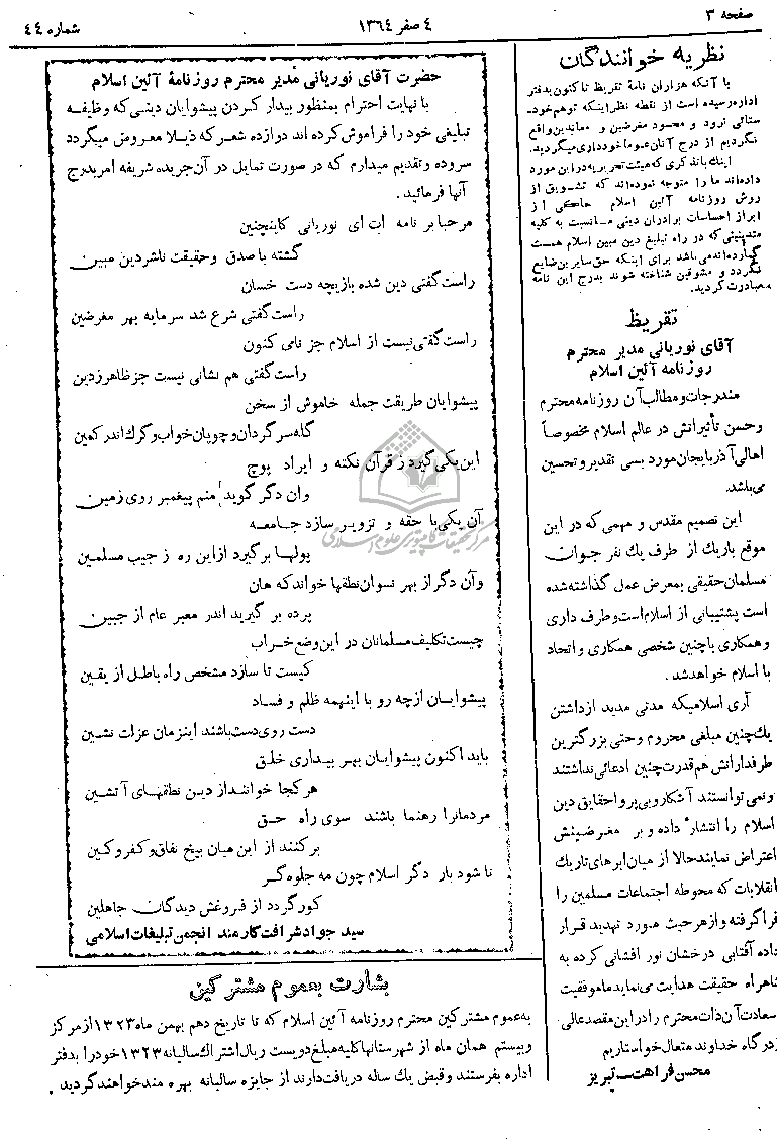 صفحه ۳
٤ صفر ۱۳٦٤
شماره ٤٤
نظریه خوانندگان
با آنکه هزاران نامهٔ تقریظ تاکنون بدفتر
اداره رسیده است از نقطه نظر اینکه توهم خود-
ستائی نرود و محمود مغرضین و معاندین واقع
نگردیم از درج آنان عموما خودداری میگردید.
اینك باتذکری که هیئت تحریریه در این مورد
داده‌اند ما را متوجه نموده‌اند که تشویق از
روش روزنامه آئین اسلام حاکی از
ابراز احساسات برادران دینی ما نسبت به کلیه
متدینینی که در راه تبلیغ دین مبین اسلام همت
گمارده‌اند می‌باشد برای اینکه حق سایرین ضایع
نگردد و مشوقین شناخته شوند بدرج این نامه
مبادرت گردید.
تقریظ
آقای نوریانی مدیر محترم
روزنامه آئین اسلام
مندرجات و مطالب آن روزنامه محترم
وحسن تأثیراتش در عالم اسلام مخصوصاً
اهالی آذربایجان مورد بسی تقدیر و تحسین
می‌باشد.
این تصمیم مقدس و مهمی که در این
موقع باریك از طرف یك نفر جوان
مسلمان حقیقی بمعرض عمل گذاشته شده
است پشتیبانی از اسلام است و طرف داری
و همکاری باچنین شخصی همکاری و اتحاد
با اسلام خواهد شد.
آری اسلامیکه مدتی مدید از داشتن
یك چنین مبلغی محروم و حتی بزرگترین
طرفدارانش هم قدرت چنین ادعائی نداشتند
ونمی توانستند آشکارو بی پروا حقایق دین
اسلام را انتشار داده و بر مغرضینش
اعتراض نمایند حالا از میان ابرهای تاریك
انقلابات که محوطه اجتماعات مسلمین را
فرا گرفته و از هر حیث مورد تهدید قرار
داده آفتابی درخشان نور افشانی کرده به
شاهراه حقیقت هدایت می نماید ما موفقیت
و سعادت آن ذات محترم را در این مقصد عالی
از درگاه خداوند متعال خواستاریم
محسن فراهت - تبریز
حضرت آقای نوریانی مدیر محترم روزنامهٔ آئین اسلام
با نهایت احترام بمنظور بیدار کردن پیشوایان دینی که وظیفه
تبلیغی خود را فراموش کرده اند دوازده شعر که ذیلا معروض میگردد
سروده و تقدیم میدارم که در صورت تمایل در آن جریده شریفه امر بدرج
آنها فرمائید.
مرحبا بر نامه ات ای نوریانی کاینچنین
گشته با صدق وحقیقت ناشر دین مبین
راست گفتی دین شده بازیچه دست خسان
راست گفتی شرع شد سرمایه بهر مغرضین
راست گفتی نیست از اسلام جز نامی کنون
راست گفتی هم نشانی نیست جز ظاهر زدین
پیشوایان طریقت جمله خاموش از سخن
گله سرگردان و چوپان خواب و گرك اندر کمین
این یکی گیرد ز قرآن نکته و ایراد پوچ
وان دگر گوید منم پیغمبر روی زمین
آن یکی با حقه و تزویر سازد جامعه
پولها بر گیرد ازاین ره ز جیب مسلمین
وآن دگر از بهر نسوان نطقها خواند که هان
پرده بر گیرید اندر معبر عام از جبین
چیست تکلیف مسلمانان در این وضع خراب
کیست تا سازد مشخص راه باطل از یقین
پیشوایان ازچه رو با اینهمه ظلم و فساد
دست روی دست باشند اینزمان عزلت نشین
باید اکنون پیشوایان بهر بیداری خلق
هر کجا خوانند از دین نطقهای آتشین
مردمانرا رهنما باشند سوی راه حق
بر کنند از این میان بیخ نفاق و کفر و کین
تا شود بار دگر اسلام چون مه جلوه گر
کور گردد از فروغش دیدگان جاهلین
سید جواد شرافت کارمند انجمن تبلیغات اسلامی
مرکز تحقیقات کامپیوتری علوم اسلامی
بشارت بعموم مشترکین
به عموم مشترکین محترم روزنامه آئین اسلام که تا تاریخ دهم بهمن ماه ۱۳۲۳ از مرکز
و بیستم همان ماه از شهرستانها کلیه مبلغ دویست ریال اشتراك سالیانه ۱۳۲۳ خود را بدفتر
اداره بفرستند و قبض یك ساله دریافت دارند از جایزه سالیانه بهره مند خواهند گردید.